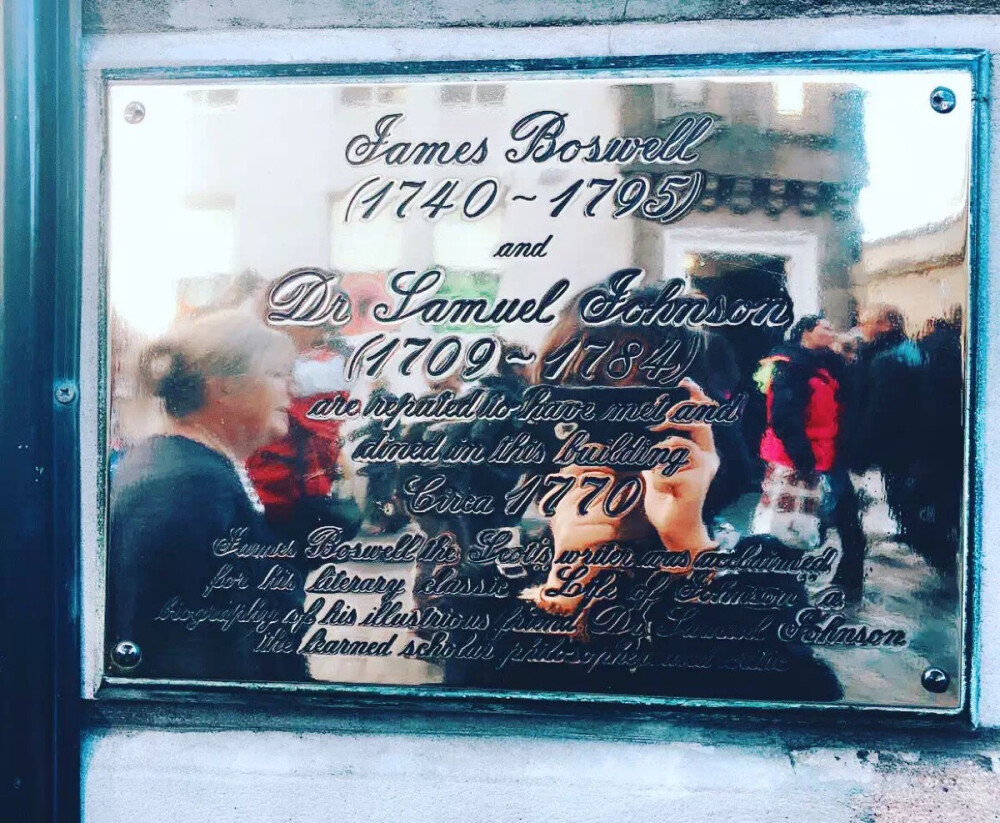 James Boswell
(1740~1795)
and
Dr Samuel Johnson
(1709~1784)
are reputed to have met and
dined in this building
Circa 1770
James Boswell the Scots writer was acclaimed
for his literary classic Life of Johnson a
biography of his illustrious friend Dr Samuel Johnson
the learned scholar philosopher and critic